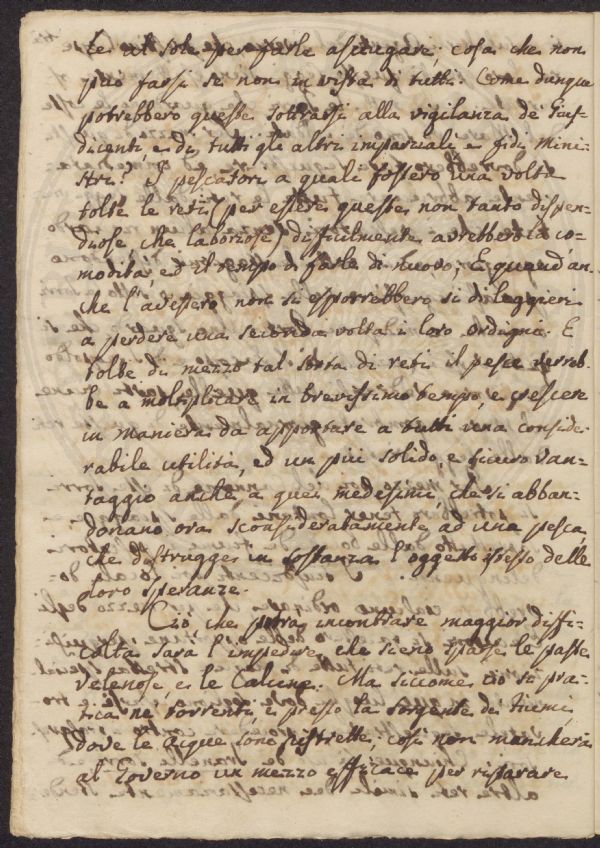 le al sole per farle asciugare; cosa che non
può farsi se non in vista di tutti. Come dunque
potrebbero queste sottrarsi alla vigilanza de' Gius-
dicenti, e di tutti gli altri imparziali e fidi Mini-
stri? I pescatori a quali fossero una volta
tolte le reti (per essere queste non tanto dispen-
diose, che laboriose) difficilmente avrebbero la co-
modità, ed il tempo di farle di nuovo; E quand' an-
che l'avessero non si esporrebbero sì di leggieri
a perdere una seconda volta i loro ordigni. E
tolte di mezzo tal sorta di reti il pesce verreb-
be a moltiplicare in brevissimo tempo, e crescere
in maniera da apportare a tutti una conside-
rabile utilità, ed un più solido, e sicuro van-
taggio anche a quei medesimi, che si abban-
donano ora sconsideratamente ad una pesca,
che distrugge in sostanza l'oggetto istesso delle
loro speranze.
Ciò che potrà incontrare maggior diffi-
coltà sarà l'impedire, che sieno sparse le paste
velenose e le Calcine. Ma siccome ciò si pra-
tica ne' torrenti, e presso la sorgente de' fiumi,
dove le acque sono ristrette, così non mancherà
al Governo un mezzo efficace per riparare